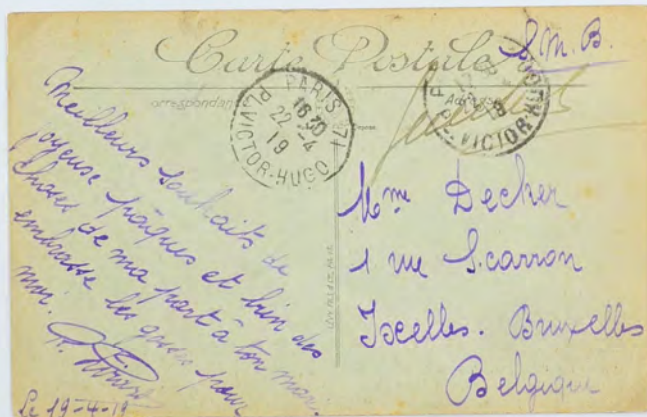 Carte Postale
S.M.B.
Correspondance
Adresse
PARIS 71
16 30
22 - 4
19
PL. VICTOR-HUGO
VICTOR-HUGO
Meilleurs souhaits de
joyeuse pâques et bien des
choses de ma part à ton mari.
embrasse les gosses pour
moi.
Le 19-4-19
Mme Decker
1 rue Scarron
Ixelles. Bruxelles
Belgique